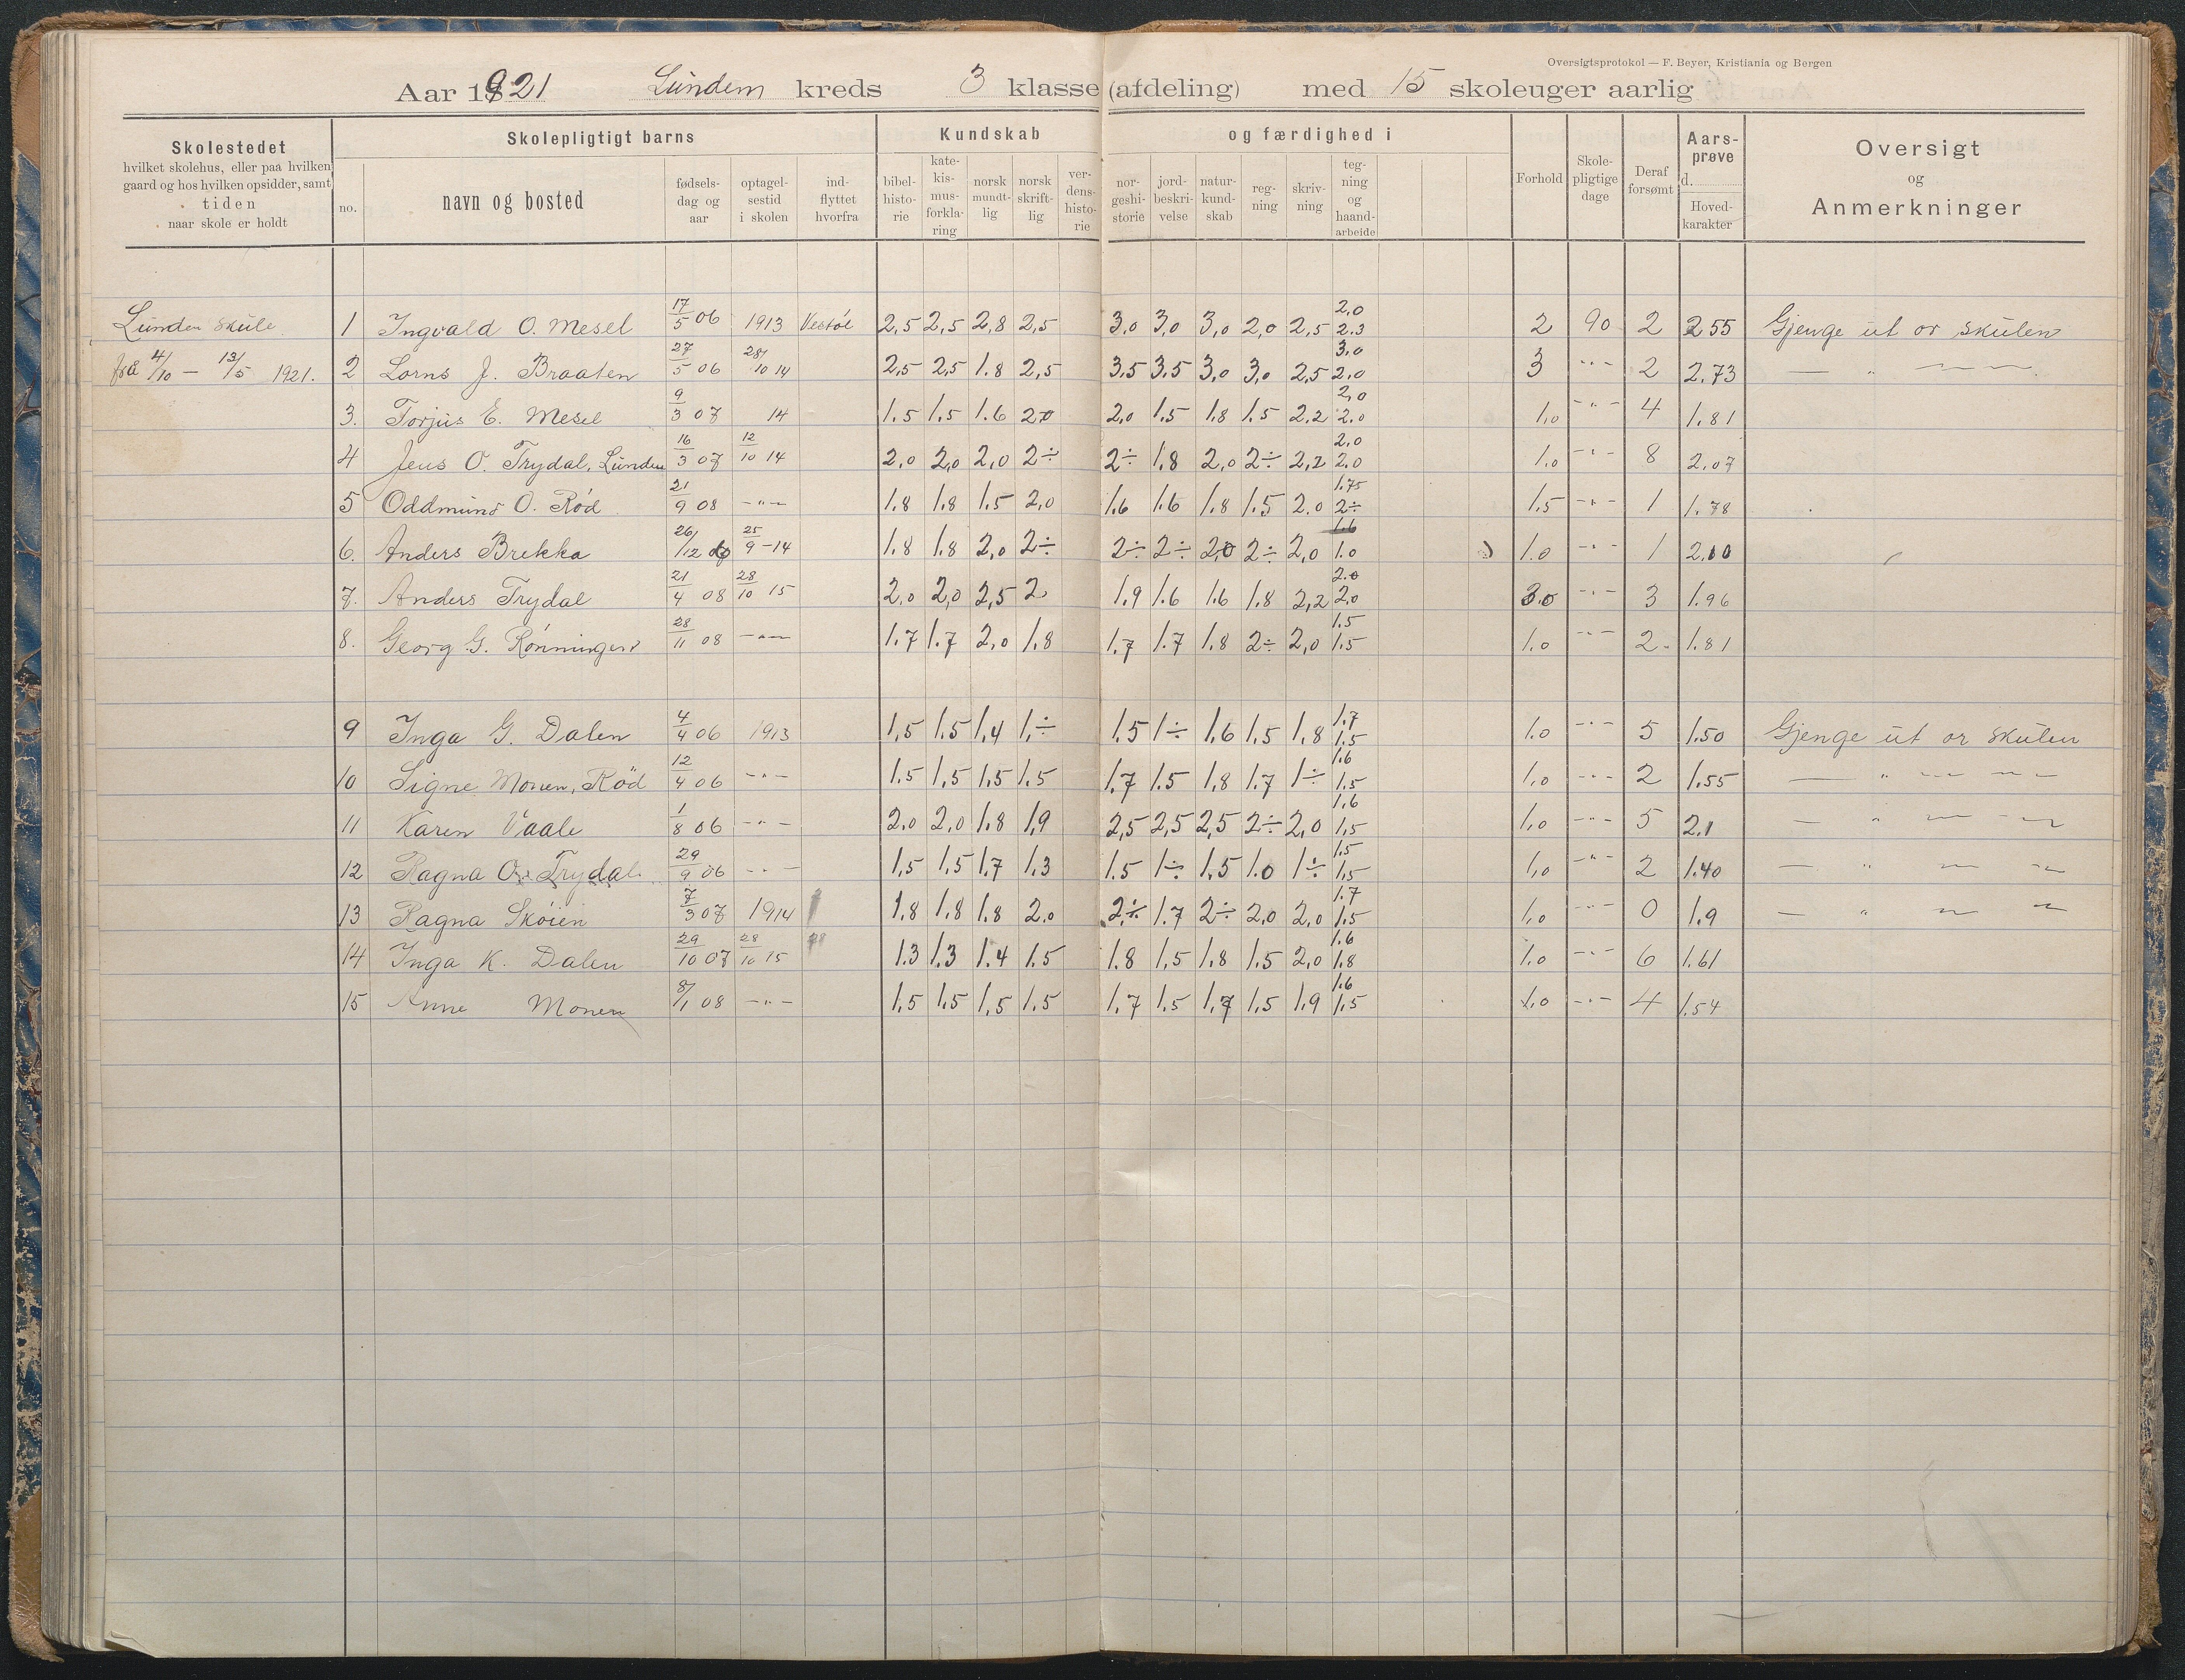 Oversigtsprotokol — F. Beyer, Kristiania og Bergen
Aar 1921 Lunden kreds 3 klasse (afdeling) med 15 skoleuger aarlig
Skolestedet
hvilket skolehus, eller paa hvilken
gaard og hos hvilken opsidder, samt
tiden
naar skole er holdt
Skolepligtigt barns
no.
navn og bosted
fødsels-
dag og
aar
optagel-
sestid
i skolen
ind-
flyttet
hvorfra
Kundskab og færdighed i
bibel-
histo-
rie
kate-
kis-
mus-
forkla-
ring
norsk
mundt-
lig
norsk
skrift-
lig
ver-
dens-
histo-
rie
nor-
geshi-
storie
jord-
beskri-
velse
natur-
kund-
skab
reg-
ning
skriv-
ning
teg-
ning
og
haand-
arbeide
Forhold
Skole-
pligtige
dage
Deraf
forsømt
Aars-
prøve
d.
Hoved-
karakter
Oversigt
og
Anmerkninger
Lunden skule
fra 4/10 — 13/5 1921.
1 Ingvald O. Mesel 17/5 06 1913 Vestøl 2,5 2,5 2,8 2,5 3,0 3,0 3,0 2,0 2,5 2,0 2.3 2 90 2 2.55 Gjenge ut or skulen
2 Lorns J. Braaten 27/5 06 28/10 14 2,5 2,5 1.8 2,5 3,5 3,5 3,0 3,0 2,5 3,0 2,0 3 -"- 2 2.73 — " — —
3. Torjus E. Mesel 9/3 07 14 1.5 1.5 1.6 2,0 2,0 1.5 1.8 1.5 2.2 2,0 2.0 1,0 -"- 4 1.81
4 Jens O. Trydal, Lunden 16/3 07 12/10 14 2,0 2,0 2,0 2÷ 2÷ 1.8 2,0 2÷ 2,2 2,0 2,0 1.0 -"- 8 2.07
5 Oddmund O. Röd 21/9 08 -"- 1.8 1.8 1.5 2,0 1.6 1.6 1.8 1.5 2.0 1.75 2÷ 1.5 -"- 1 1.78
6. Anders Brekka 26/12 07 25/9 -14 1.8 1.8 2,0 2÷ 2÷ 2÷ 2,0 2÷ 2,0 1.6 1.0 1.0 -"- 1 2.00
7. Anders Trydal 21/4 08 28/10 15 2,0 2,0 2,5 2 1.9 1.6 1.6 1.8 2,2 2.0 2,0 3.0 -"- 3 1.96
8. Georg G. Rönningen 28/11 08 -"- 1.7 1.7 2,0 1.8 1.7 1.7 1.8 2÷ 2,0 1.5 1.5 1.0 -"- 2 1.81
9 Inga G. Dalen 4/4 06 1913 1,5 1.5 1,4 1,÷ 1.5 1÷ 1,6 1.5 1,8 1.7 1.5 1.0 -"- 5 1.50 Gjenge ut or skulen
10 Signe Monen, Röd 12/4 06 -"- 1.5 1,5 1,5 1.5 1.7 1.5 1.8 1.7 1÷ 1.6 1.5 1,0 -"- 2 1.55 — " — —
11 Karen Vaale 1/8 06 -"- 2.0 2,0 1.8 1,9 2,5 2,5 2,5 2÷ 2,0 1,6 1,5 1,0 -"- 5 2.1 — " — —
12 Ragna O. Trydal 29/9 06 -"- 1,5 1,5 1.7 1.3 1.5 1÷ 1.5 1.0 1÷ 1.5 1.5 1,0 -"- 2 1.40 — " — —
13 Ragna Sköien 7/3 07 1914 1.8 1.8 1.8 2.0 2÷ 1.7 2÷ 2,0 2,0 1.7 1.5 1,0 -"- 0 1.9 — " — —
14 Inga K. Dalen 29/10 07 28/10 15 1.3 1.3 1.4 1.5 1.8 1,5 1.8 1.5 2,0 1.6 1.8 1.0 -"- 6 1.61
15 Anne Monen 8/1 08 -"- 1,5 1,5 1,5 1.5 1.7 1.5 1.7 1.5 1.9 1.6 1.5 1.0 -"- 4 1.54